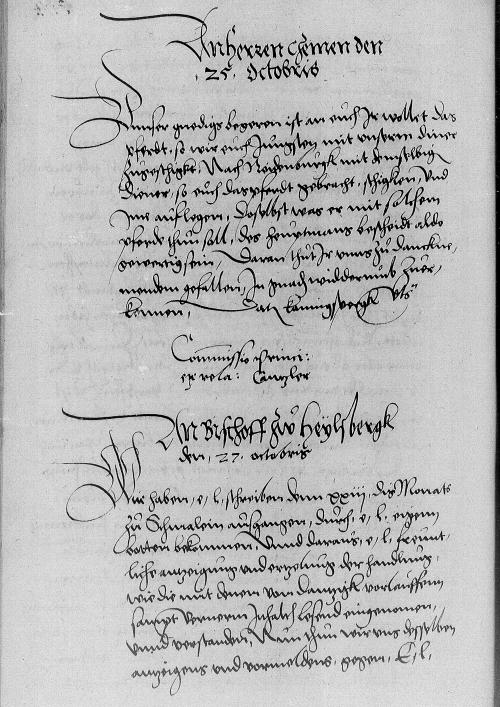 An herren Chemen den
.25. Octobris
Unnser gnedigs begeren ist an euch Ir wollet das
pferdt, so wir euch Jungsten mit unserm diner
zugeschigkt, Nach Neidenburgk mit demselbigen
Diener, so euch das pferdt gebracht, schigken und
Ime aufflegen, doselbst was er mit solchem
pferde thun soll, des heuptmans bescheidt aldo
gewertig sein, Daran thut Ir unns zu danckne,
mendem gefallen, In gnad widdermub zuer,
kennen, Datum Koningspergk Uts
Commissio Princi:
ex rela: Cantzler
An Bischoff zu Heylsbergk
den .27. octobris
Wir haben .e.l. schreiben denn xxiiij dis Monats
zu Schmalein ausgangen, durch .e.l. eigenn
botten bekommen, Unnd daraus .e.l. freunt,
liche anzeigung und ertzelung der handlung,
wie die mit denen vom Dantzigk vorlauffenn
sampt Fernerm Inhalth lesend eingenomen,
unnd verstanden, Nun thun wir uns desselben
anzeigens und vormeldens, gegen .E.l.